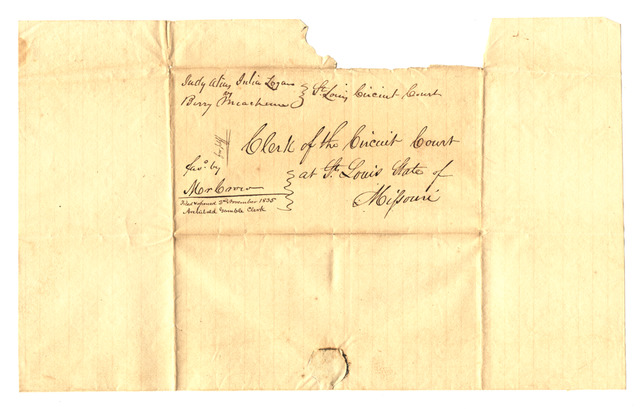 Judy alias Julia Logan
vs
Berry Meachum
St. Louis Circuit Court
Clerk of the Circuit Court
at St. Louis State of
Missouri
favd. by
Mr
Filed & opened 3d November 1835
Archibald Gamble Clerk